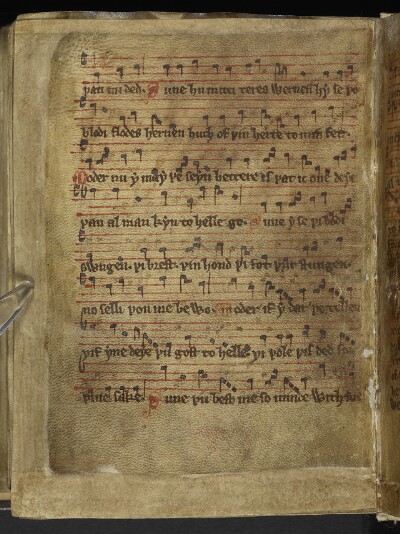 þan mi ded. Sune hu mitti teres wernen hy se þo
blodi flodes hernen huth of þin herte to min fet.
Moder nu y may þe seyn bettere is þat ic one deye
þan al man kyn to helle go. Sune y se þi bodi
swngen. þi brest. þin hond þi fot þur stungen.
no selli þou me be wo. moder if y dar þe tellen
yif yne deye þu gost to helle. hi þole þis ded for
þine sake. Sune þu best me so minde with